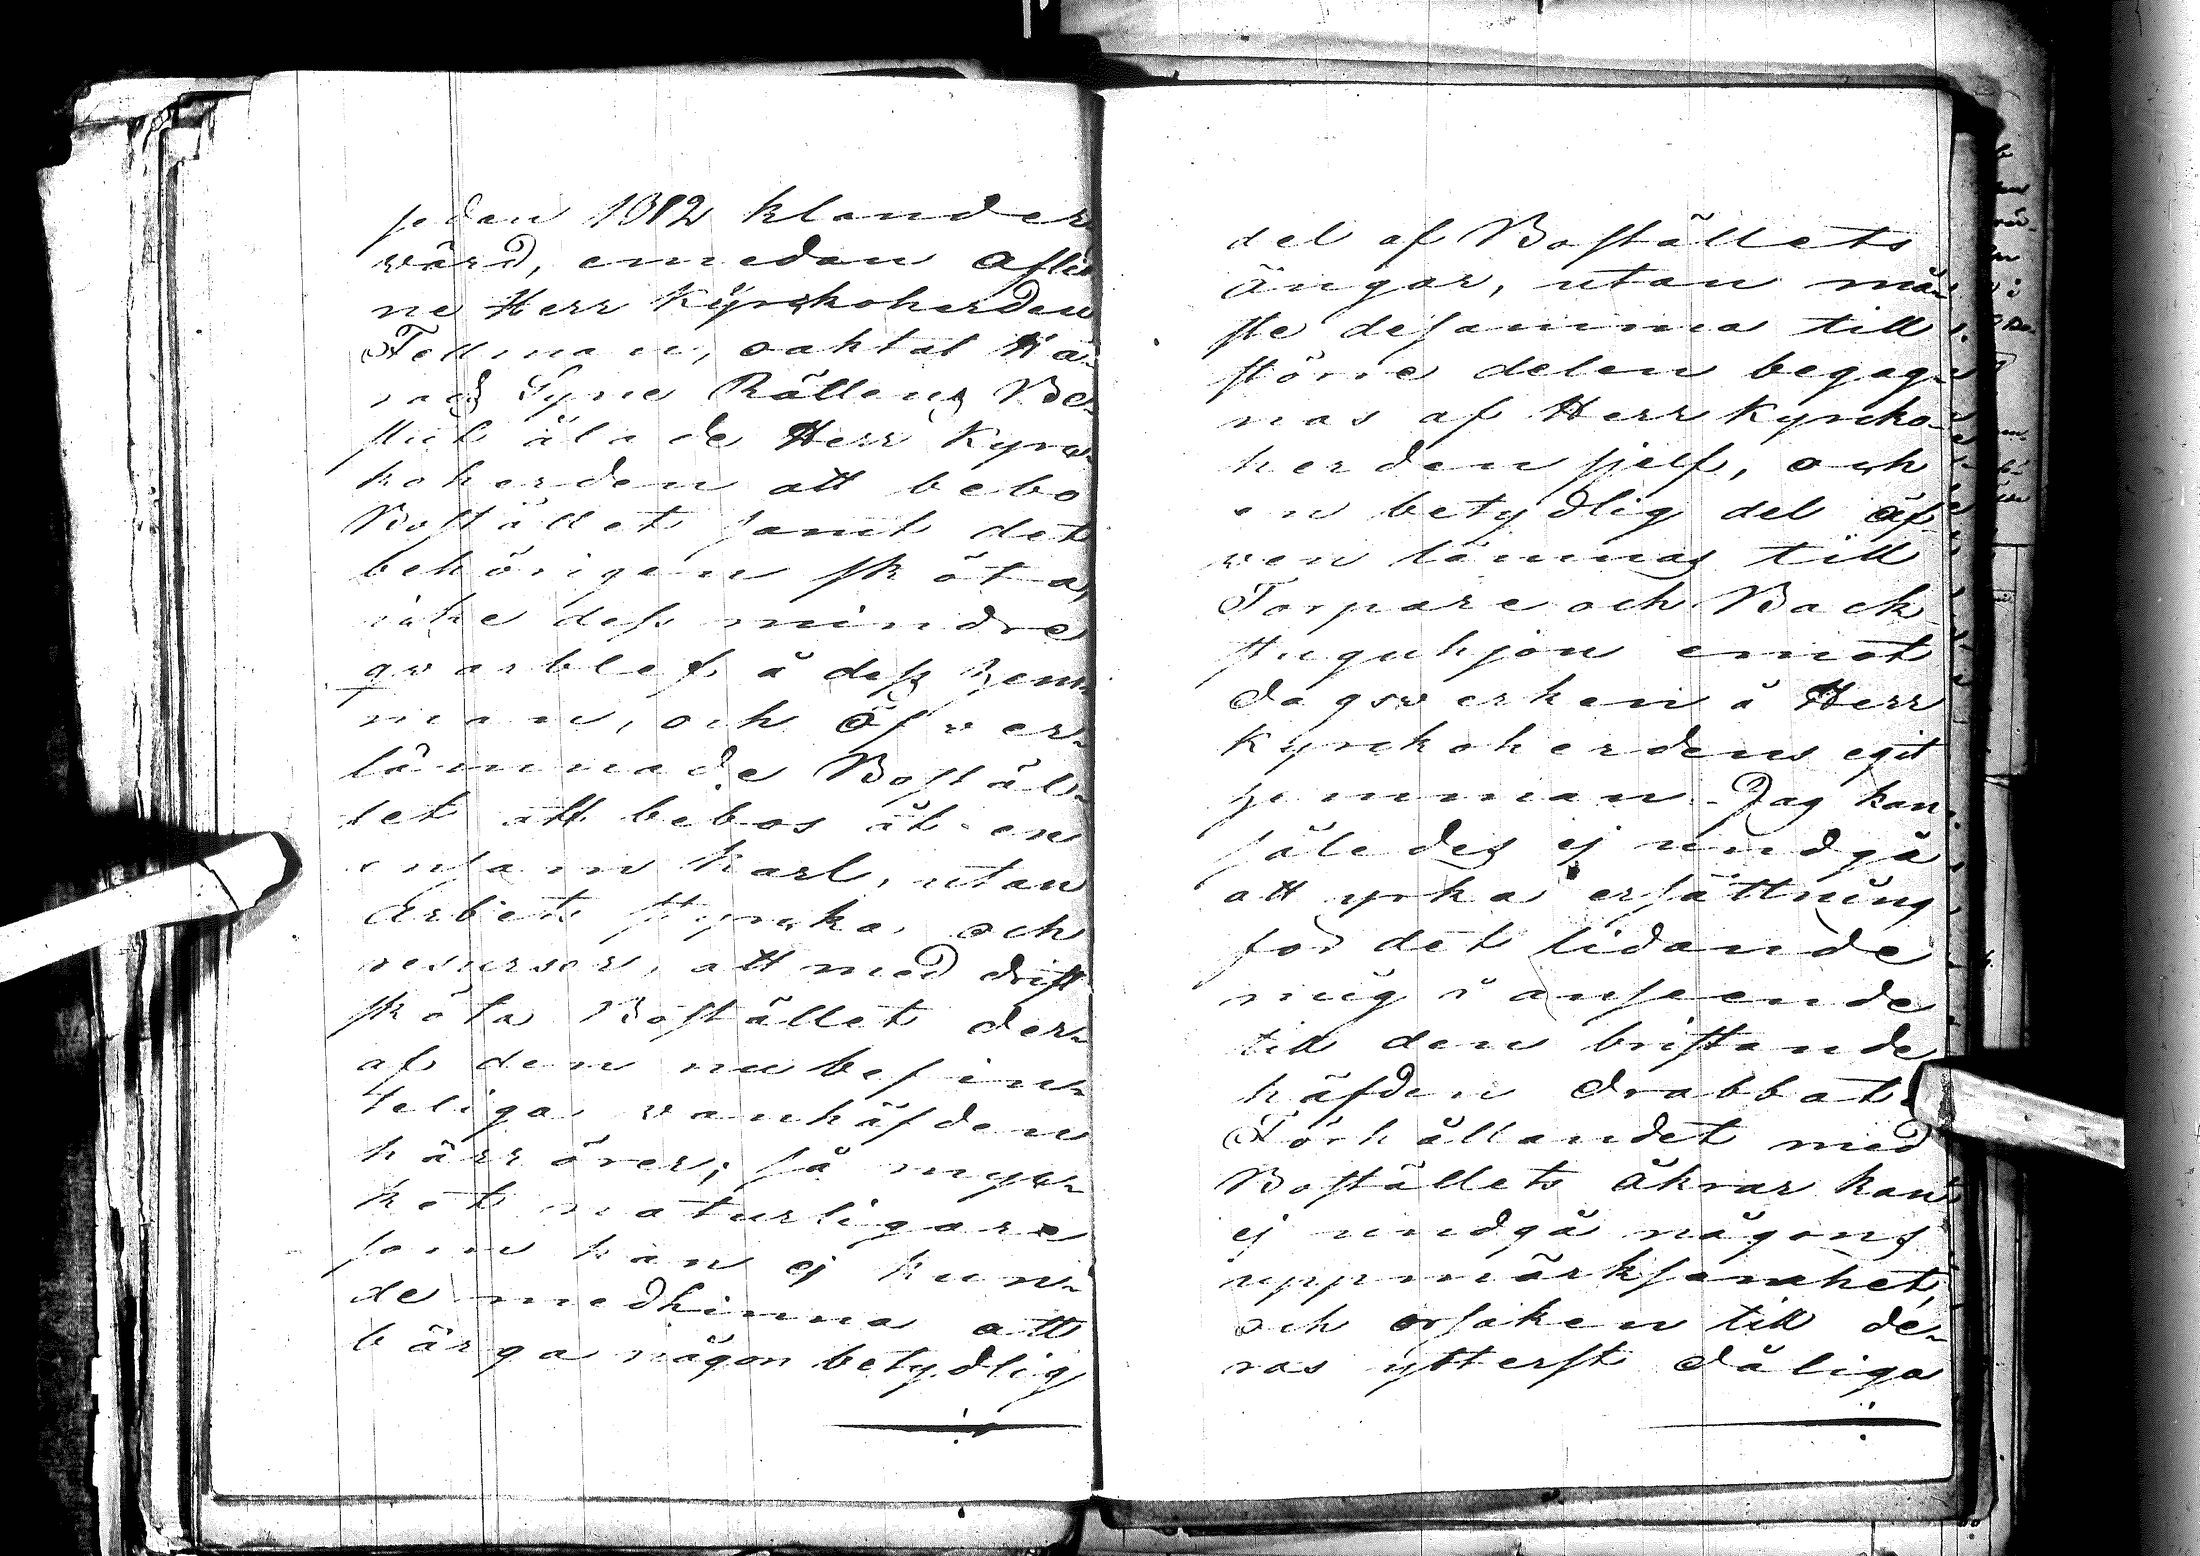 sedan 1812 klander
wärd, emedan Aflid
ne Herr Kyrckoherden
Fellman, oaktat Kä-
rads Syne Rättens Be-
slut ålade Herr Kyrc-
koherden att bebo
Bostället samt det
behörigen sköta,
icke dess mindre
qvarblef å dess hem-
man, och öfwer-
lämnade Bostäl-
let att bebos åt en
ensam karl, utan
Arbets styrcka och
resurser, att med drift
sköta Bostället der-
af den nu befin-
teliga vanhäfden
härrörer; så myc-
ket naturligare
som han ej kun-
de medhinna att
bärga någon betydlig
del af Boställets
ängar, utan mån-
ste desamma till
större delen begag-
nas af Herr Kyrcko-
herden sjelf, och
en betydlig del äf-
ven lämnas till
Torpare och Back
stuguhjon emot
dagsverken å Herr
Kyrckoherdens egit
hemman. Jag kan
således ej undgå
att yrka ersättning
för det lidande
mig i anseende
till den bristande
häfden drabbat.
Förhållandet med
Boställets åkrar kan
ej undgå någons
uppmärksamhet,
och orsaken till de-
ras ytterst dåliga